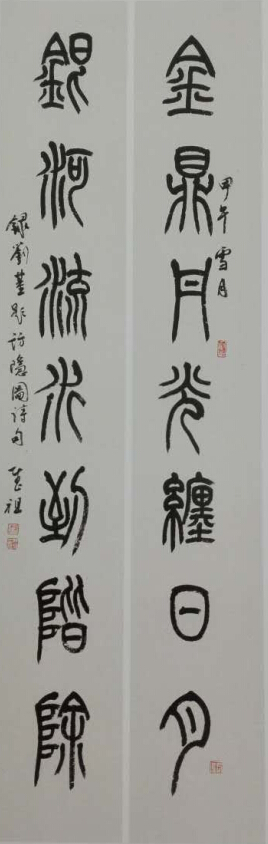 金鼎丹光纏日月
甲午雪月
銀河流水到階除
錄劉基題訪隱圖詩句 祖